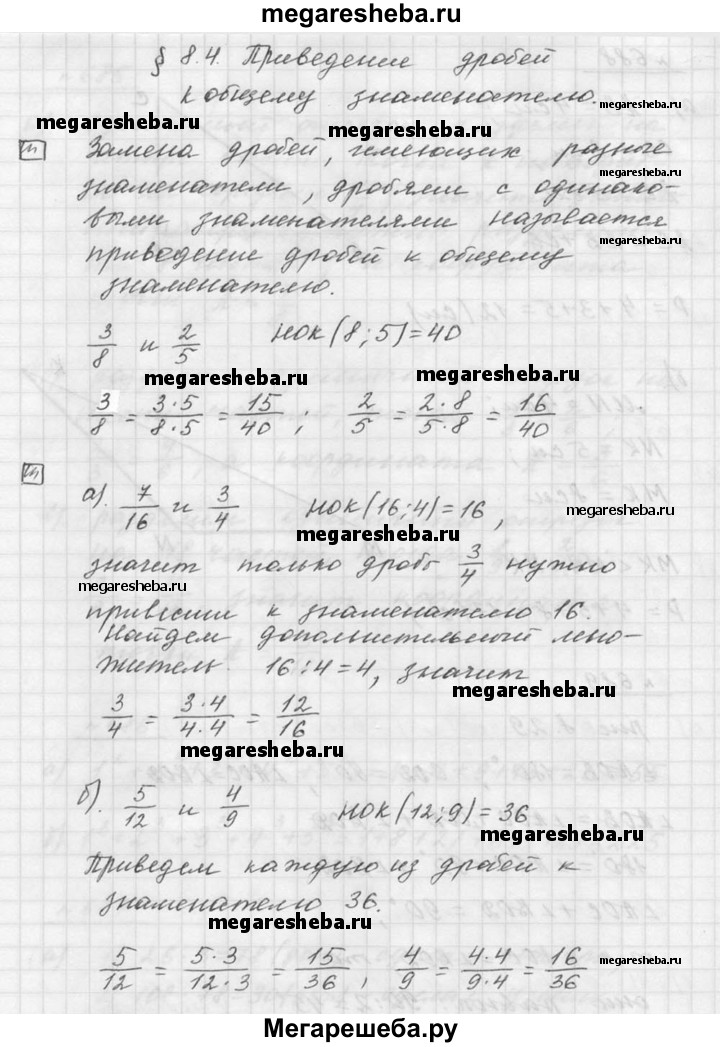 megaresheba.ru
§ 8.4. Приведение дробей
к общему знаменателю.
megaresheba.ru
megaresheba.ru
megaresheba.ru
Замена дробей, имеющих разные
знаменатели, дробями с одинако-
выми знаменателями называется
megaresheba.ru
приведение дробей к общему
знаменателю.
3/8 и 2/5 НОК(8;5)=40
megaresheba.ru
megaresheba.ru
3/8 = 3·5/8·5 = 15/40 ; 2/5 = 2·8/5·8 = 16/40
а). 7/16 и 3/4 НОК(16;4)=16,
megaresheba.ru
megaresheba.ru
значит только дробь 3/4 нужно
megaresheba.ru
привести к знаменателю 16.
Найдем дополнительный мно-
житель. 16:4=4, значит
megaresheba.ru
3/4 = 3·4/4·4 = 12/16
megaresheba.ru
б). 5/12 и 4/9 НОК(12;9)=36
megaresheba.ru
Приведем каждую из дробей к
знаменателю 36.
megaresheba.ru
5/12 = 5·3/12·3 = 15/36, 4/9 = 4·4/9·4 = 16/36
megaresheba.ru
Мегарешеба.ру